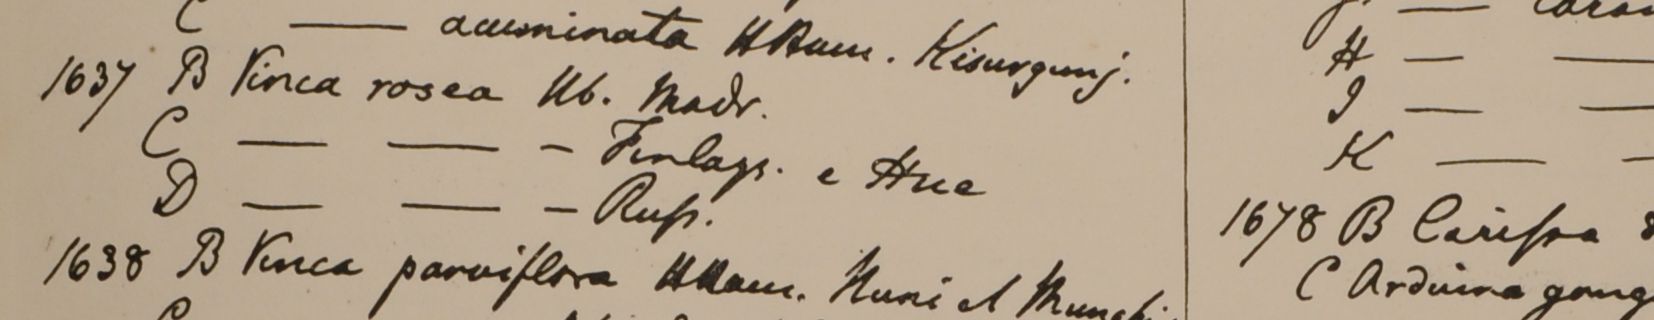 C — acuminata HHam. Kisurgunj.
1637 B Vinca rosea Hb. Madr.
C — — — Finlays. e Hue
D — — — Russ.
1638 B Vinca parviflora HHam. Nuni et
H — —
I — —
K — —
1678 B Carissa
C Arduina